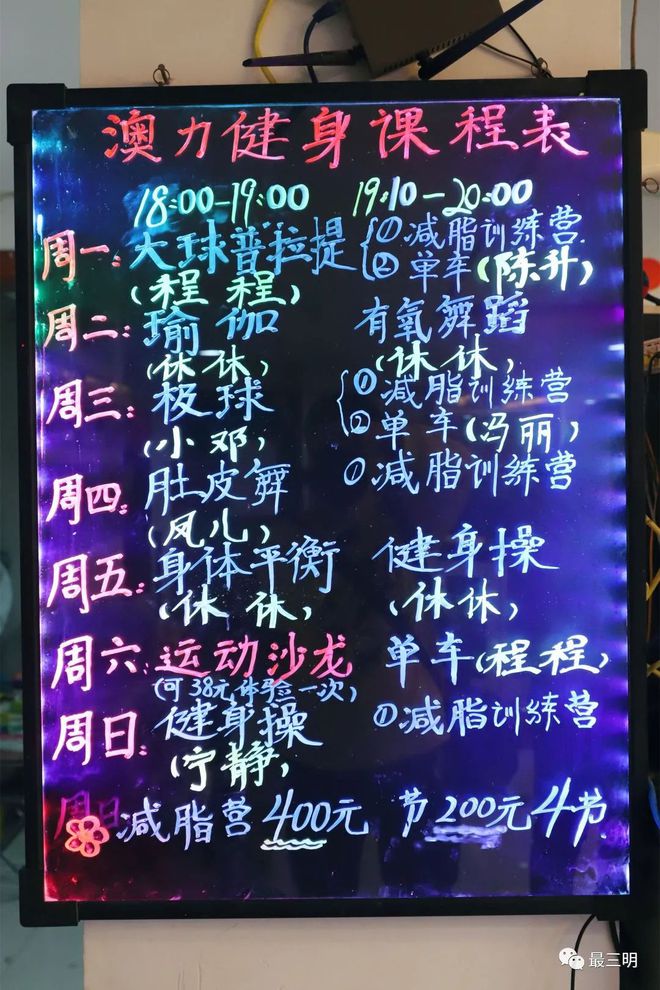 澳力健身课程表
18:00-19:00 19:10-20:00
周一: 大球普拉提 ①减脂训练营
(程程) ②单车(陈升)
周二: 瑜伽 有氧舞蹈
(休休) (休休)
周三: 极球 ①减脂训练营
(小邓) ②单车(冯丽)
周四: 肚皮舞 ①减脂训练营
(凤儿)
周五: 身体平衡 健身操
(休休) (休休)
周六: 运动沙龙 单车(程程)
(可38元体验一次)
周日: 健身操 ①减脂训练营
(宁静)
周日
减脂营400元 节200元4节
最三明